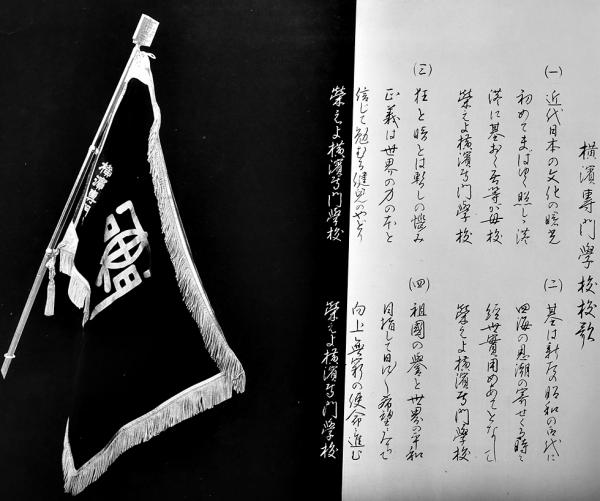 横濱專門學校校歌
(一)
近代日本の文化の曙光
初めてまばゆく照しゝ港
港に基おく吾等が母校
榮えよ横濱専門學校
(二)
基は新たの昭和の御代に
四海の思潮の寄せくる時に
経世實用めあてとなして
榮えよ横濱専門學校
(三)
狂と暗とは暫しの惱み
正義は世界の力の本と
信じて勉むる健児のやどり
榮えよ横濱専門學校
(四)
祖國の譽と世界の平和
目指して日に〳〵希望
向上無窮の使命に進む
榮えよ横濱専門學校
横濱専門
専門